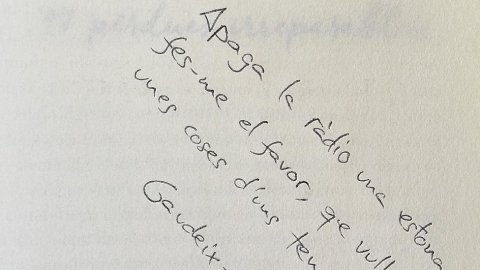 Apaga la ràdio una estona
fes-me el favor, qe vull
unes coses d'uns
Gaudeix-